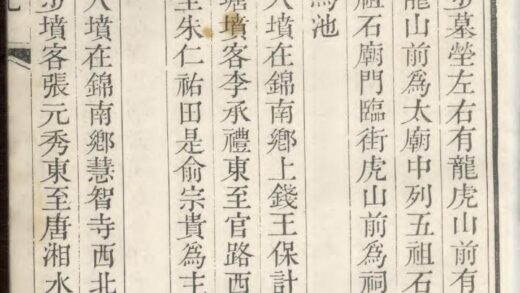 墓塋左右有龍虎山前有
龍山前為太廟中列五祖石
祖石廟門臨街虎山前為祠
為池
人墳在錦南鄉上錢王保計
塘墳客李承禮東至官路西
至朱仁祐田是俞宗貴為主
人墳在錦南鄉慧智寺西北
墳客張元秀東至唐湘水